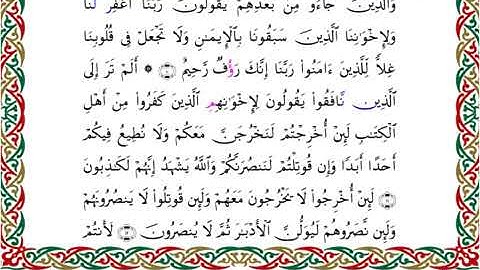 وَٱلَّذِينَ جَآءُو مِنۢ بَعْدِهِمْ يَقُولُونَ رَبَّنَا ٱغْفِرْ لَنَا
وَلِإِخْوَٰنِنَا ٱلَّذِينَ سَبَقُونَا بِٱلْإِيمَٰنِ وَلَا تَجْعَلْ فِى قُلُوبِنَا
غِلًّا لِّلَّذِينَ ءَامَنُوا۟ رَبَّنَآ إِنَّكَ رَءُوفٌ رَّحِيمٌ ۝١٠ ۞ أَلَمْ تَرَ إِلَى
ٱلَّذِينَ نَافَقُوا۟ يَقُولُونَ لِإِخْوَٰنِهِمُ ٱلَّذِينَ كَفَرُوا۟ مِنْ أَهْلِ
ٱلْكِتَٰبِ لَئِنْ أُخْرِجْتُمْ لَنَخْرُجَنَّ مَعَكُمْ وَلَا نُطِيعُ فِيكُمْ
أَحَدًا أَبَدًا وَإِن قُوتِلْتُمْ لَنَنصُرَنَّكُمْ وَٱللَّهُ يَشْهَدُ إِنَّهُمْ لَكَٰذِبُونَ
۝١١ لَئِنْ أُخْرِجُوا۟ لَا يَخْرُجُونَ مَعَهُمْ وَلَئِن قُوتِلُوا۟ لَا يَنصُرُونَهُمْ
وَلَئِن نَّصَرُوهُمْ لَيُوَلُّنَّ ٱلْأَدْبَٰرَ ثُمَّ لَا يُنصَرُونَ ۝١٢ لَأَنتُمْ